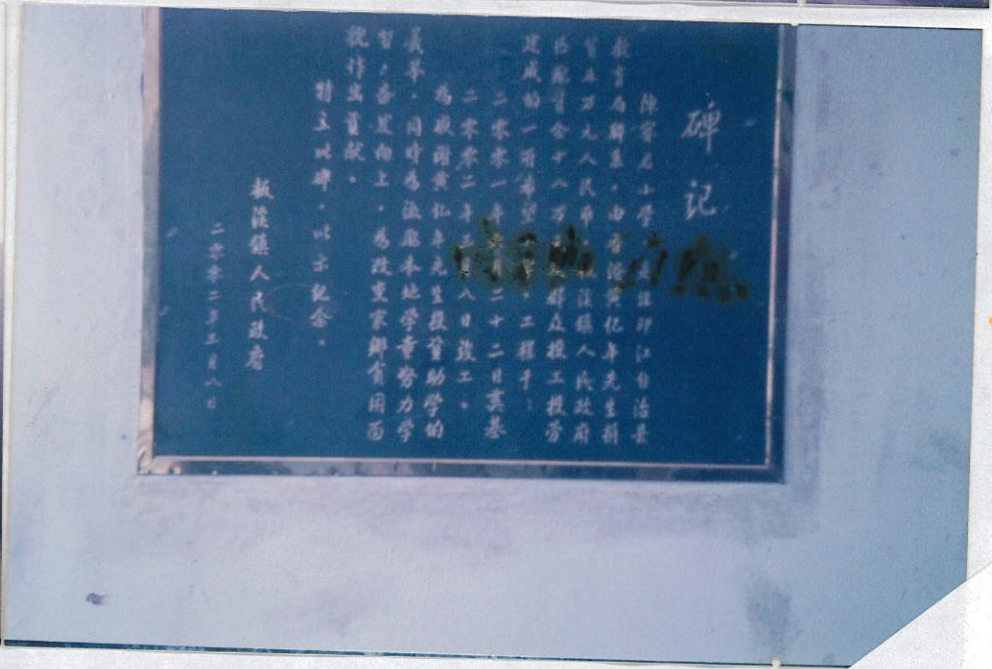 碑记
陈家岩小学 经印江自治县
教育局联系,由香港黄亿年先生捐
资五万元人民币 板溪镇人民政府
匹配资金十八万 群众投工投劳
建成的一所希望 工程于:
二零零一年 月二十二日奠基
二零零二年三月八日竣工。
为感谢黄亿年先生投资助学的
义举,同时为激励本地学童努力学
习,奋发向上,为改变家乡贫困面
貌作出贡献。
特立此碑,以示纪念。
板溪镇人民政府
二零零二年三月八日